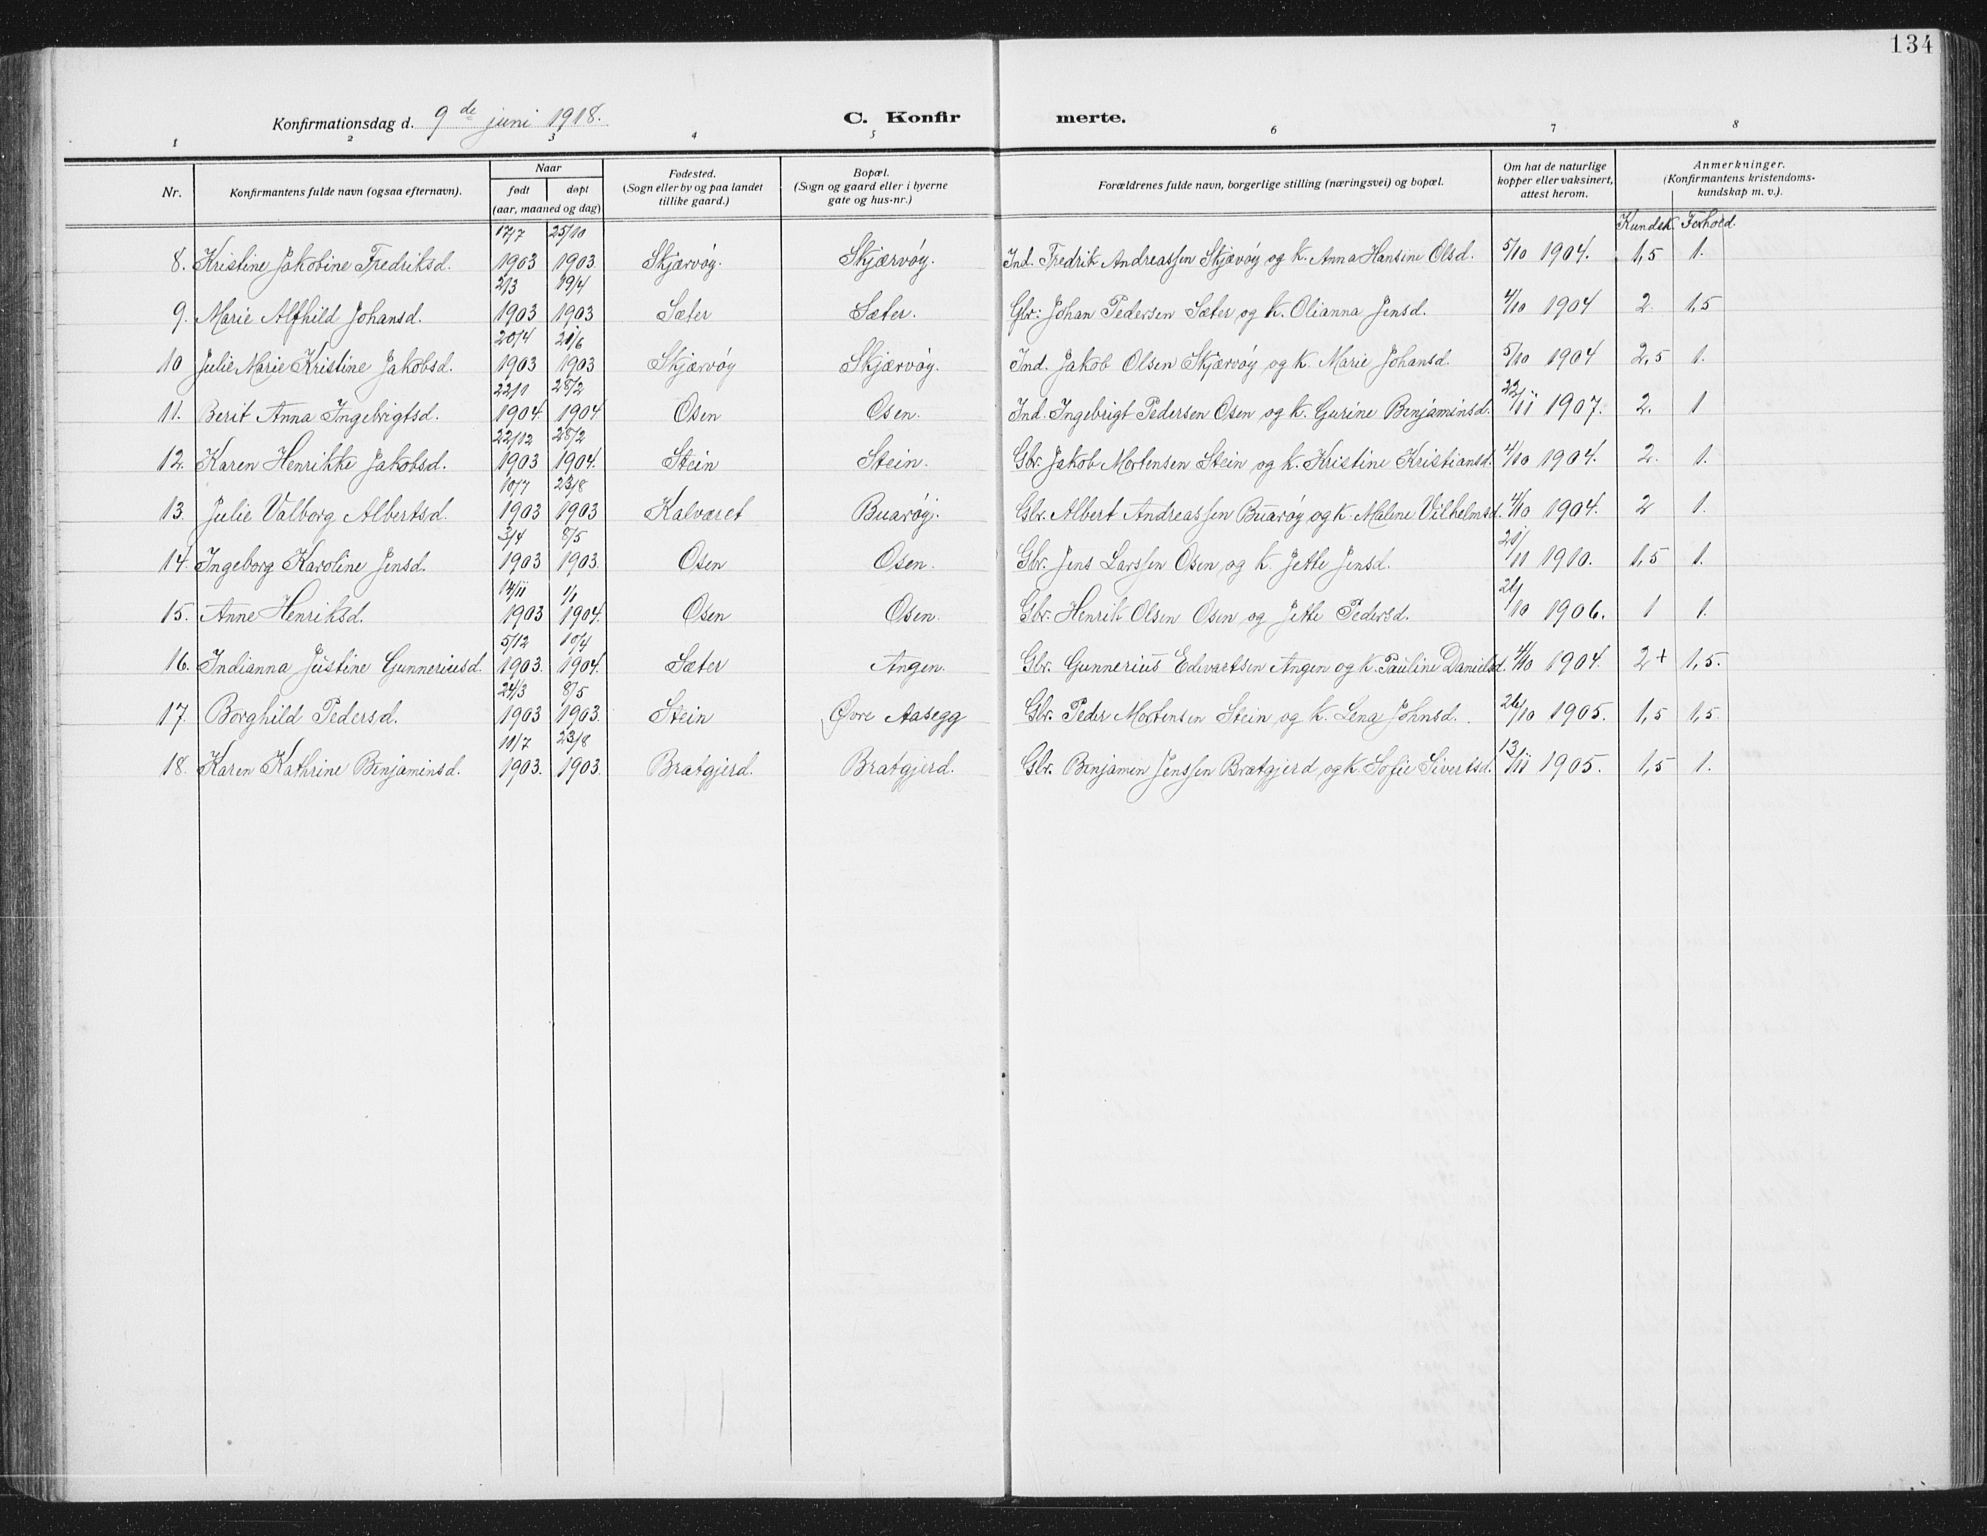 134
Konfirmationsdag d. 9de juni 1918. C. Konfirmerte.
1 2 3 4 5 6 7 8
Nr. Konfirmantens fulde navn (ogsaa efternavn). Naar født døpt (aar, maaned og dag) Fødested. (Sogn eller by og paa landet tillike gaard.) Bopæl. (Sogn og gaard eller i byerne gate og hus-nr.) Forældrenes fulde navn, borgerlige stilling (næringsvei) og bopæl. Om hat de naturlige kopper eller vaksinert, attest herom. Anmerkninger. (Konfirmantens kristendomskundskap m. v.).
Kundsk. Forhold.
8. Kristine Jakobine Fredriksd. 17/7 1903 25/10 1903. Skjærvøy. Skjærvøy. Ind. Fredrik Andreassen Skjævøy og k. Anna Hansine Olsd. 5/10 1904. 1,5 1.
9. Marie Alfhild Johansd. 2/3 1903 19/4 1903 Sæter Sæter. Gbr: Johan Pedersen Sæter og k. Olianna Jensd. 4/10 1904 2. 1,5
10 Julie Marie Kristine Jakobsd. 20/4 1903 21/6 1903 Skjærvøy Skjærvøy. Ind. Jakob Olsen Skjærvøy og k. Marie Johansd. 5/10 1904 2,5 1.
11. Berit Anna Ingebrigtsd. 22/1 1904. 28/2 1904 Osen Osen. Ind. Ingebrigt Pedersen Osen og k. Gurine Benjaminsd. 22/11 1907. 2. 1
12. Karen Henrikke Jakobsd. 22/12 1903 28/2 1904. Stein Stein. Gbr. Jakob Mortensen Stein og k. Kristine Kristiansd. 4/10 1904. 2. 1.
13. Julie Valborg Albertsd. 10/7 1903 23/8 1903 Kalværet Buarøy. Gbr. Albert Andreassen Buarøy og k. Malene Vilhelmsd. 4/10 1904. 2 1.
14. Ingeborg Karoline Jensd. 3/4 1903 8/5 1903. Osen Osen. Gbr. Jens Larssen Osen og k. Jette Jensd. 21/11 1910. 1,5 1.
15. Anne Henriksd. 14/11 1903 1/1 1904. Osen Osen. Gbr. Henrik Olsen Osen og Jette Pedersd. /10 1906. 1 1.
16. Indianna Justine Gunneriusd. 5/12 1903. 10/4 1904. Sæter Angen. Gbr. Gunnerius Edvartsen Angen og k. Pauline Danielsd. 4/10 1904. 2+ 1,5.
17. Borghild Pedersd. 24/3 1903 8/5 1903. Stein Øvre Aasegg Gbr. Peder Mortensen Stein og k. Lena Johnsd. 26/10 1905. 1,5 1,5.
18. Karen Kathrine Benjaminsd. 10/7 1903. 23/8 1903. Bratgjerd. Bratgjerd. Gbr. Benjamin Jenssen Bratgjerd og k. Sofie Sivertsd. 13/11 1905. 1,5 1.